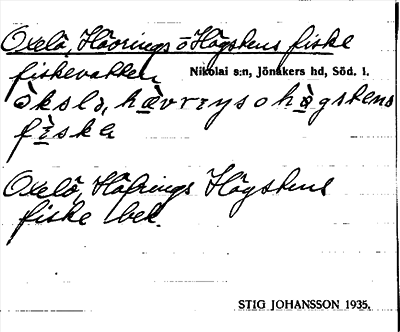 Oxelö, Hävrings o Högstens fiske
fiskevatten Nikolai s:n, Jönåkers hd, Söd. l.
fiske
Oxelö, Häfrings Högstens
fiske bek.
STIG JOHANSSON 1935.